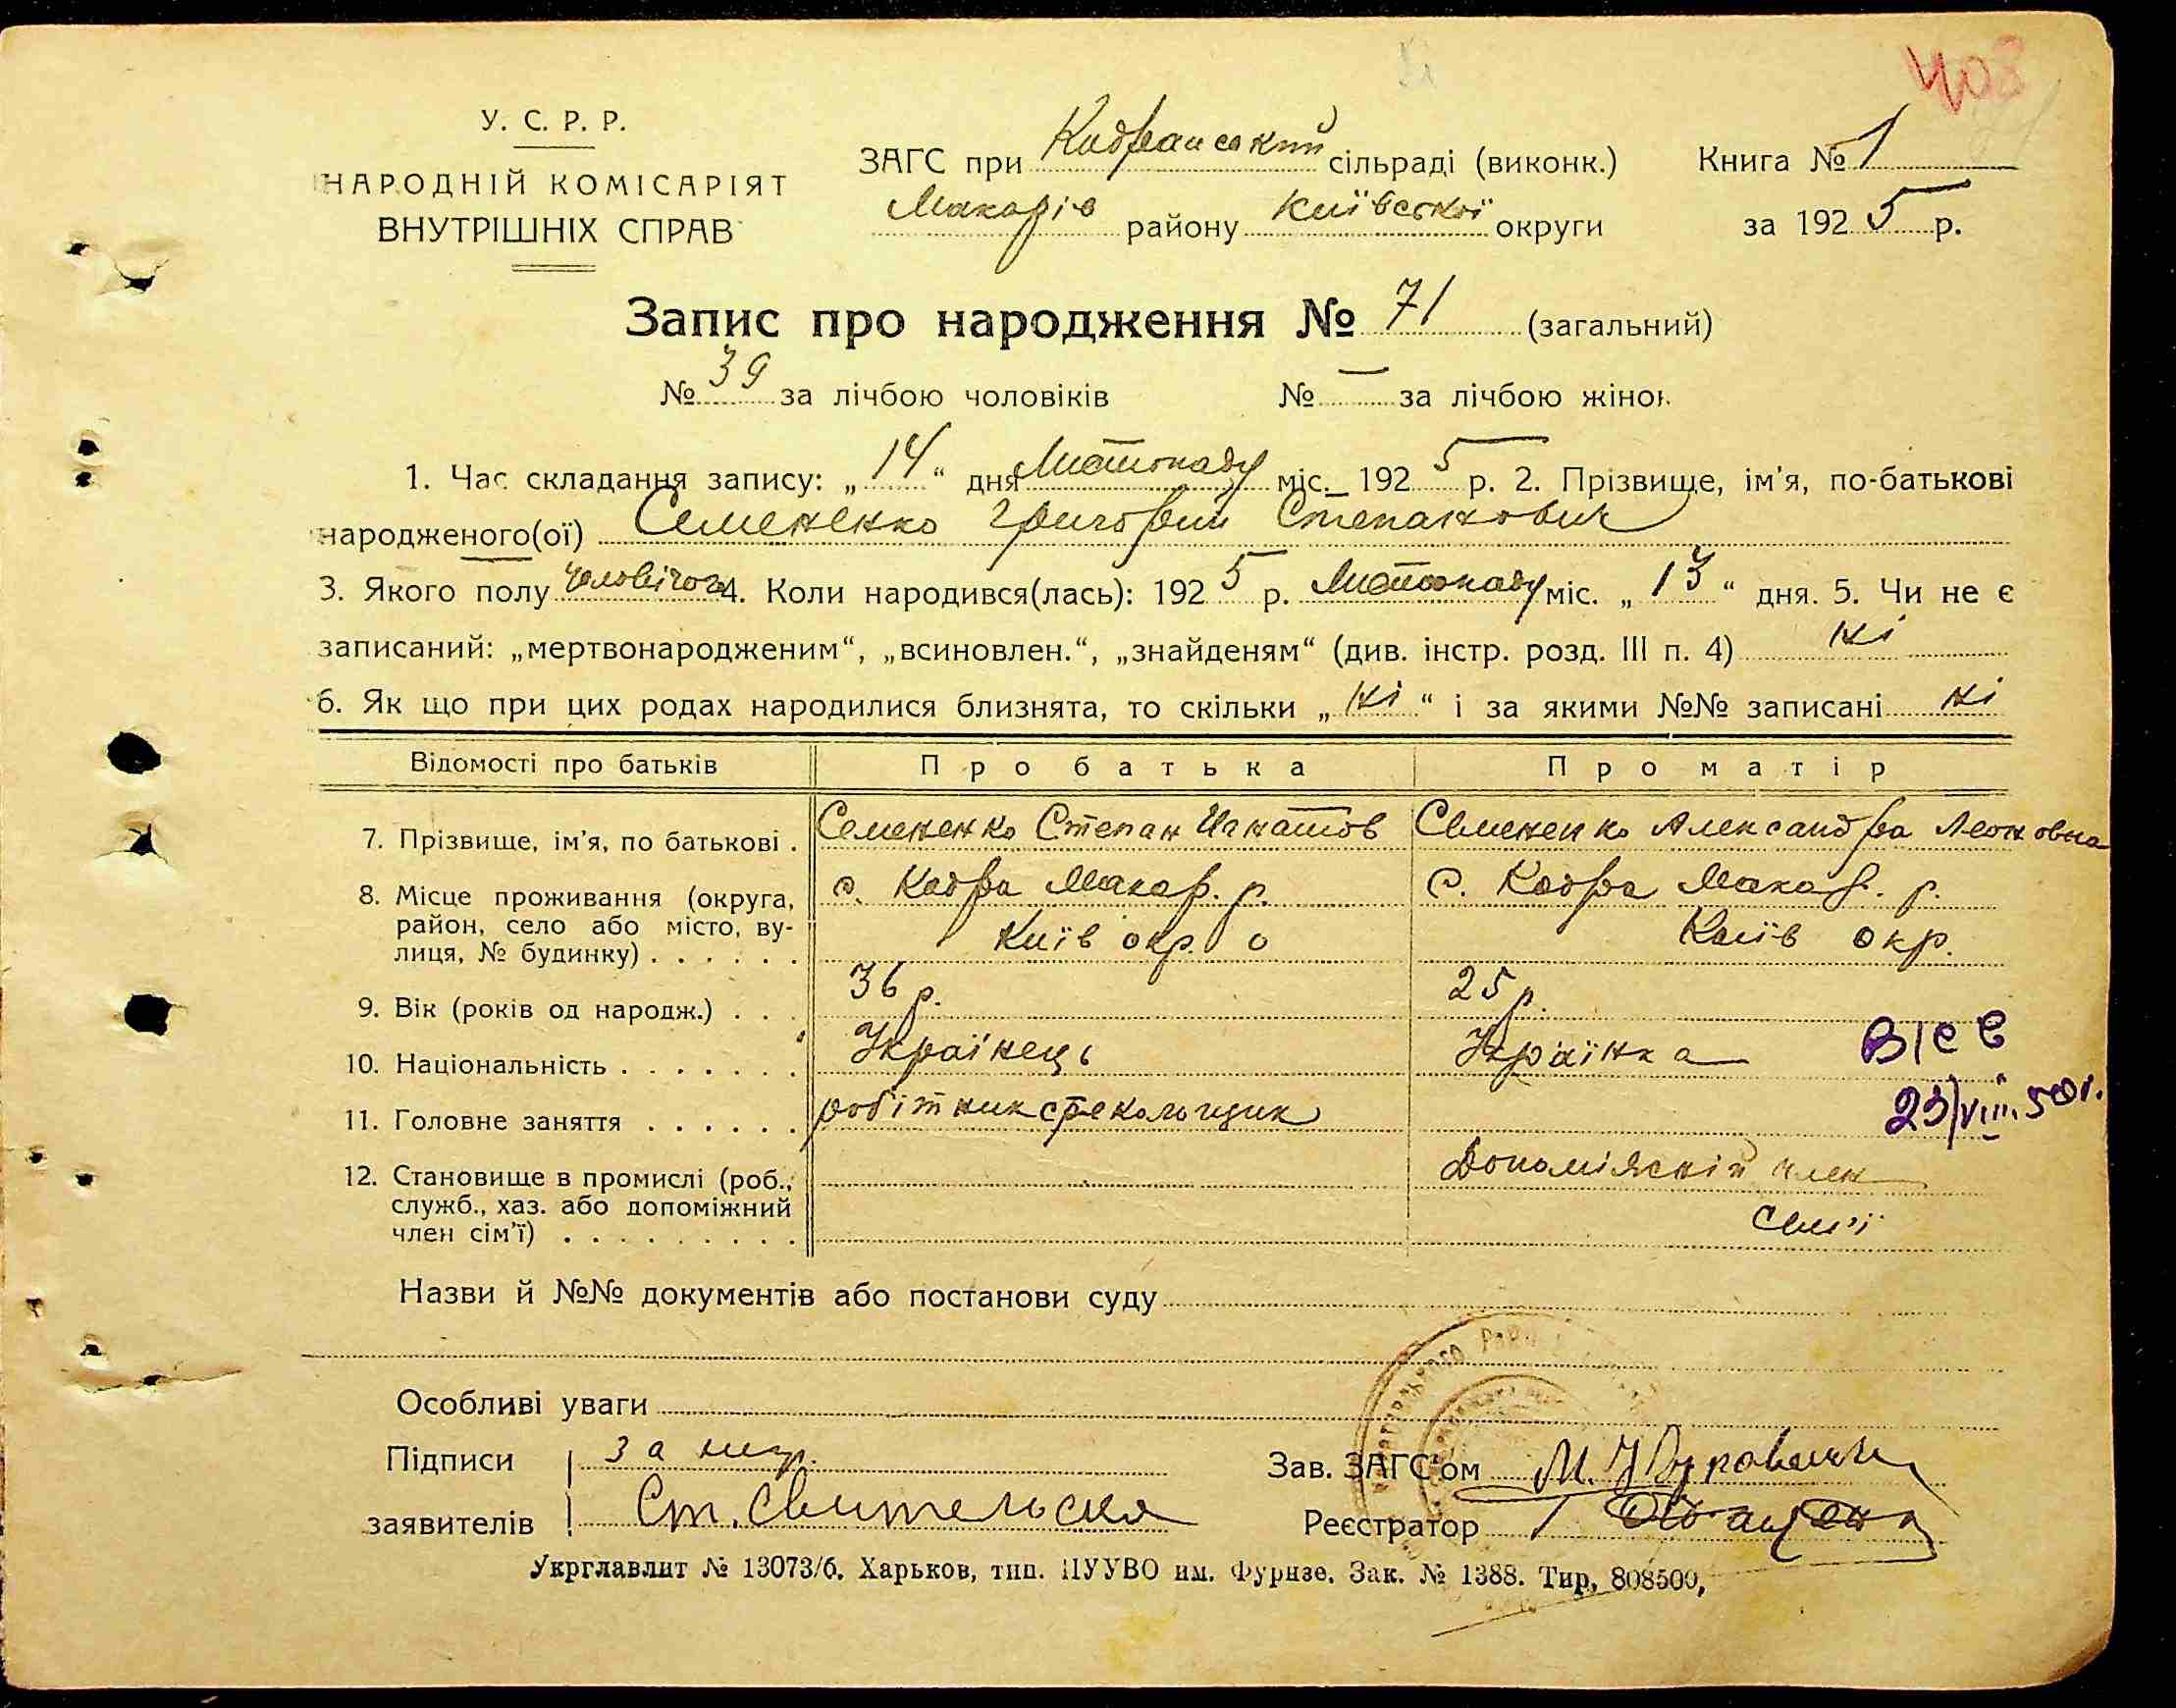 408
У. С. Р. Р.
НАРОДНІЙ КОМІСАРІЯТ
ВНУТРІШНІХ СПРАВ
ЗАГС при Кодранський сільраді (виконк.) Книга № 1
Макарів району Київської округи за 1925 р.
Запис про народження № 71 (загальний)
№ 39 за лічбою чоловіків № — за лічбою жінок
1. Час складання запису: „14“ дня Листопаду міс. 1925 р. 2. Прізвище, ім'я, по-батькові
народженого(ої) Семененко Григорий Степанович
3. Якого полу чоловічог 4. Коли народився(лась): 1925 р. Листопаду міс. „13“ дня. 5. Чи не є
записаний: „мертвонародженим“, „всиновлен.“, „знайденям“ (див. інстр. розд. III п. 4) ні
6. Як що при цих родах народилися близнята, то скільки „ні“ і за якими №№ записані ні
Відомості про батьків Про батька Про матір
7. Прізвище, ім'я, по батькові . Семененко Степан Игнатов Семененко Александра Леоновна
8. Місце проживання (округа, район, село або місто, вулиця, № будинку) . . . . . . с. Кодра Макар. р. Київ окр. с. Кодра Макар. р. Київ окр.
9. Вік (років од народж.) . . . 36 р. 25 р.
10. Національність . . . . . . . Українець Українка
11. Головне заняття . . . . . . робітник стекольщик
23/VIII.50г.
12. Становище в промислі (роб., служб., хаз. або допоміжний член сім'ї) . . . . . . . . . Допоміжній член сем'ї
Назви й №№ документів або постанови суду
Особливі уваги
Підписи за
заявителів Ст.
Зав. ЗАГС'ом М.
Реєстратор
Укрглавлит № 13073/б. Харьков, тип. ПУУВО им. Фрунзе. Зак. № 1388. Тир. 808500,